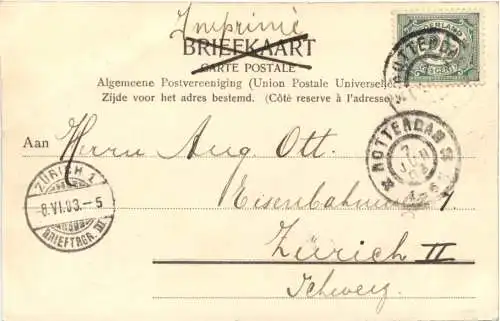 Imprimé
BRIEFKAART
CARTE POSTALE
Algemeene Postvereeniging (Union Postale Universelle)
Zijde voor het adres bestemd. (Côté reserve à l'adresse)
NEDERLAND
ROTTERDAM
Aan Herrn Aug. Ott.
ROTTERDAM
7 JUN 03
ZÜRICH 1
8.VI.03.–5
BRIEFTRGR. III
Eisenbahnw.
Zürich II
Schweiz